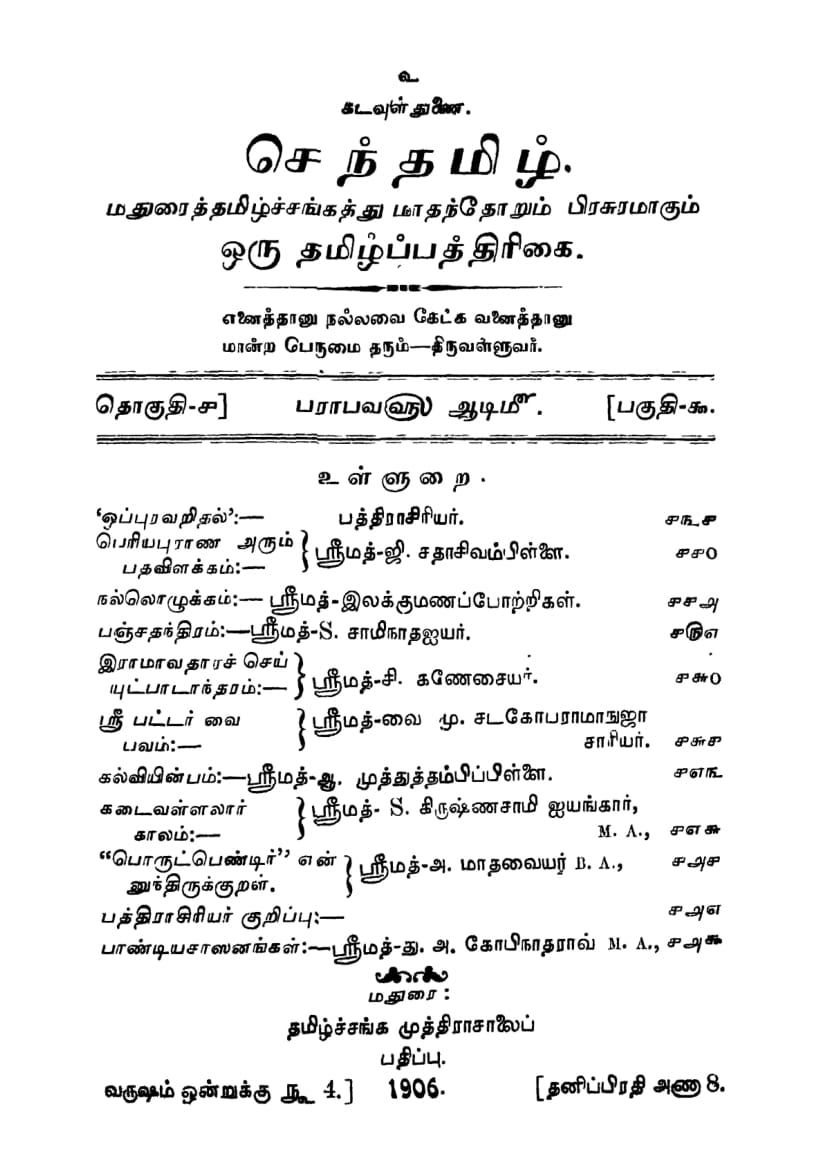 ௨
கடவுள் துணை.
செந்தமிழ்.
மதுரைத்தமிழ்ச்சங்கத்து மாதந்தோறும் பிரசுரமாகும்
ஒரு தமிழ்ப்பத்திரிகை.
எனைத்தானு நல்லவை கேட்க வனைத்தானு
மான்ற பேருமை தரும்—திருவள்ளுவர்.
தொகுதி-௪] பராபவ௵ ஆடி௴. [பகுதி-௯.
உள்ளுறை.
'ஒப்புரவறிதல்':— பத்திராசிரியர். ௪௩௪
பெரியபுராண அரும்
பதவிளக்கம்:— } ஸ்ரீமத்-ஜி. சதாசிவம்பிள்ளை. ௪௪௦
நல்லொழுக்கம்:— ஸ்ரீமத்-இலக்குமணப்போற்றிகள். ௪௪௮
பஞ்சதந்திரம்:—ஸ்ரீமத்-S. சாமிநாதஐயர். ௪௫௭
இராமாவதாரச் செய்
யுட்பாடாந்தரம்:— } ஸ்ரீமத்-சி. கணேசையர். ௪௬௦
ஸ்ரீ பட்டர் வை
பவம்:— } ஸ்ரீமத்-வை மு. சடகோபராமாநுஜா
சாரியர். ௪௬௪
கல்வியின்பம்:—ஸ்ரீமத்-ஆ. முத்துத்தம்பிப்பிள்ளை. ௪௭௩
கடைவள்ளலார்
காலம்:— } ஸ்ரீமத்- S. கிருஷ்ணசாமி ஐயங்கார்,
M. A., ௪௭௬
"பொருட்பெண்டிர்" என்
னுந்திருக்குறள். } ஸ்ரீமத்-அ. மாதவையர் B. A., ௪௮௪
பத்திராசிரியர் குறிப்பு:— ௪௮௭
பாண்டியசாஸனங்கள்:—ஸ்ரீமத்-து. அ. கோபிநாதராவ் M. A., ௪௮௯
மதுரை:
தமிழ்ச்சங்க முத்திராசாலைப்
பதிப்பு.
வருஷம் ஒன்றுக்கு ரூ 4.] 1906. [தனிப்பிரதி அணா 8.